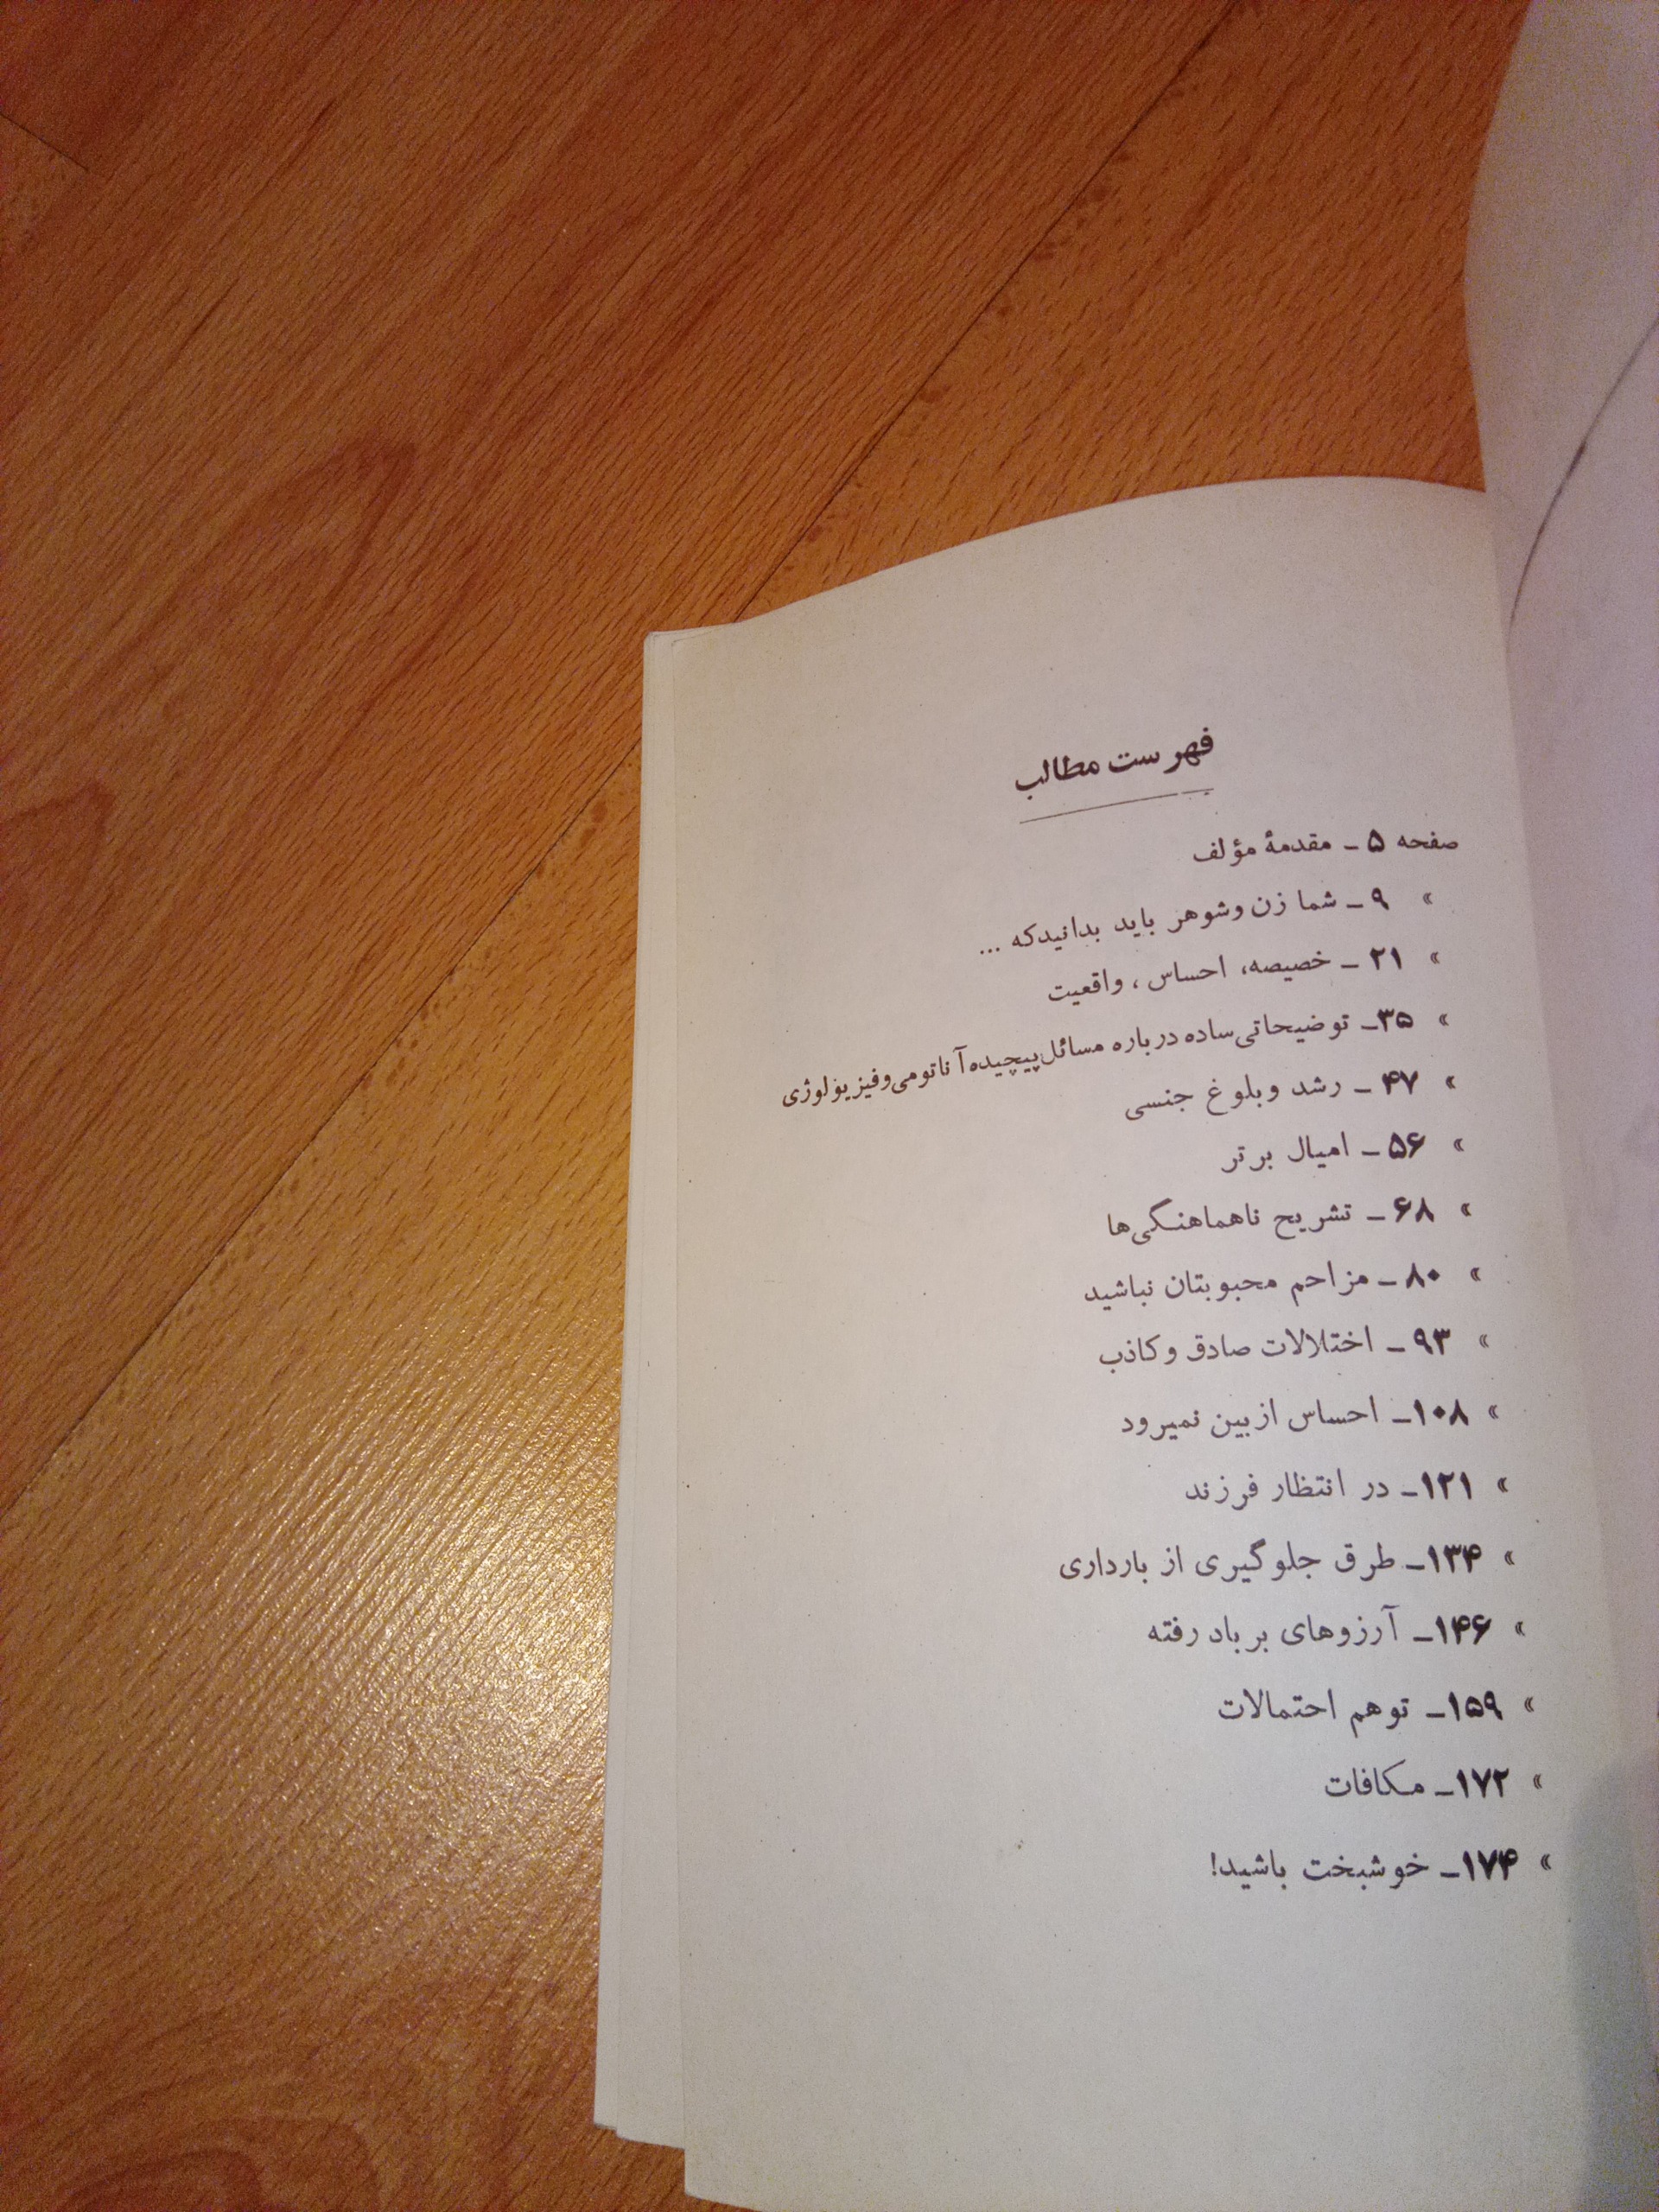 فهرست مطالب
صفحه ۵ ـ مقدمهٔ مؤلف
» ۹ ـ شما زن و شوهر باید بدانید که ...
» ۲۱ ـ خصیصه، احساس ، واقعیت
» ۳۵ـ توضیحاتی ساده درباره مسائل پیچیده آناتومی و فیزیولوژی
» ۴۷ ـ رشد و بلوغ جنسی
» ۵۶ ـ امیال برتر
» ۶۸ ـ تشریح ناهماهنگی‌ها
» ۸۰ ـ مزاحم محبوبتان نباشید
» ۹۳ ـ اختلالات صادق و کاذب
» ۱۰۸ـ احساس از بین نمیرود
» ۱۲۱ـ در انتظار فرزند
» ۱۳۴ـ طرق جلوگیری از بارداری
» ۱۴۶ـ آرزوهای بر باد رفته
» ۱۵۹ـ توهم احتمالات
» ۱۷۲ـ مکافات
» ۱۷۴ـ خوشبخت باشید!